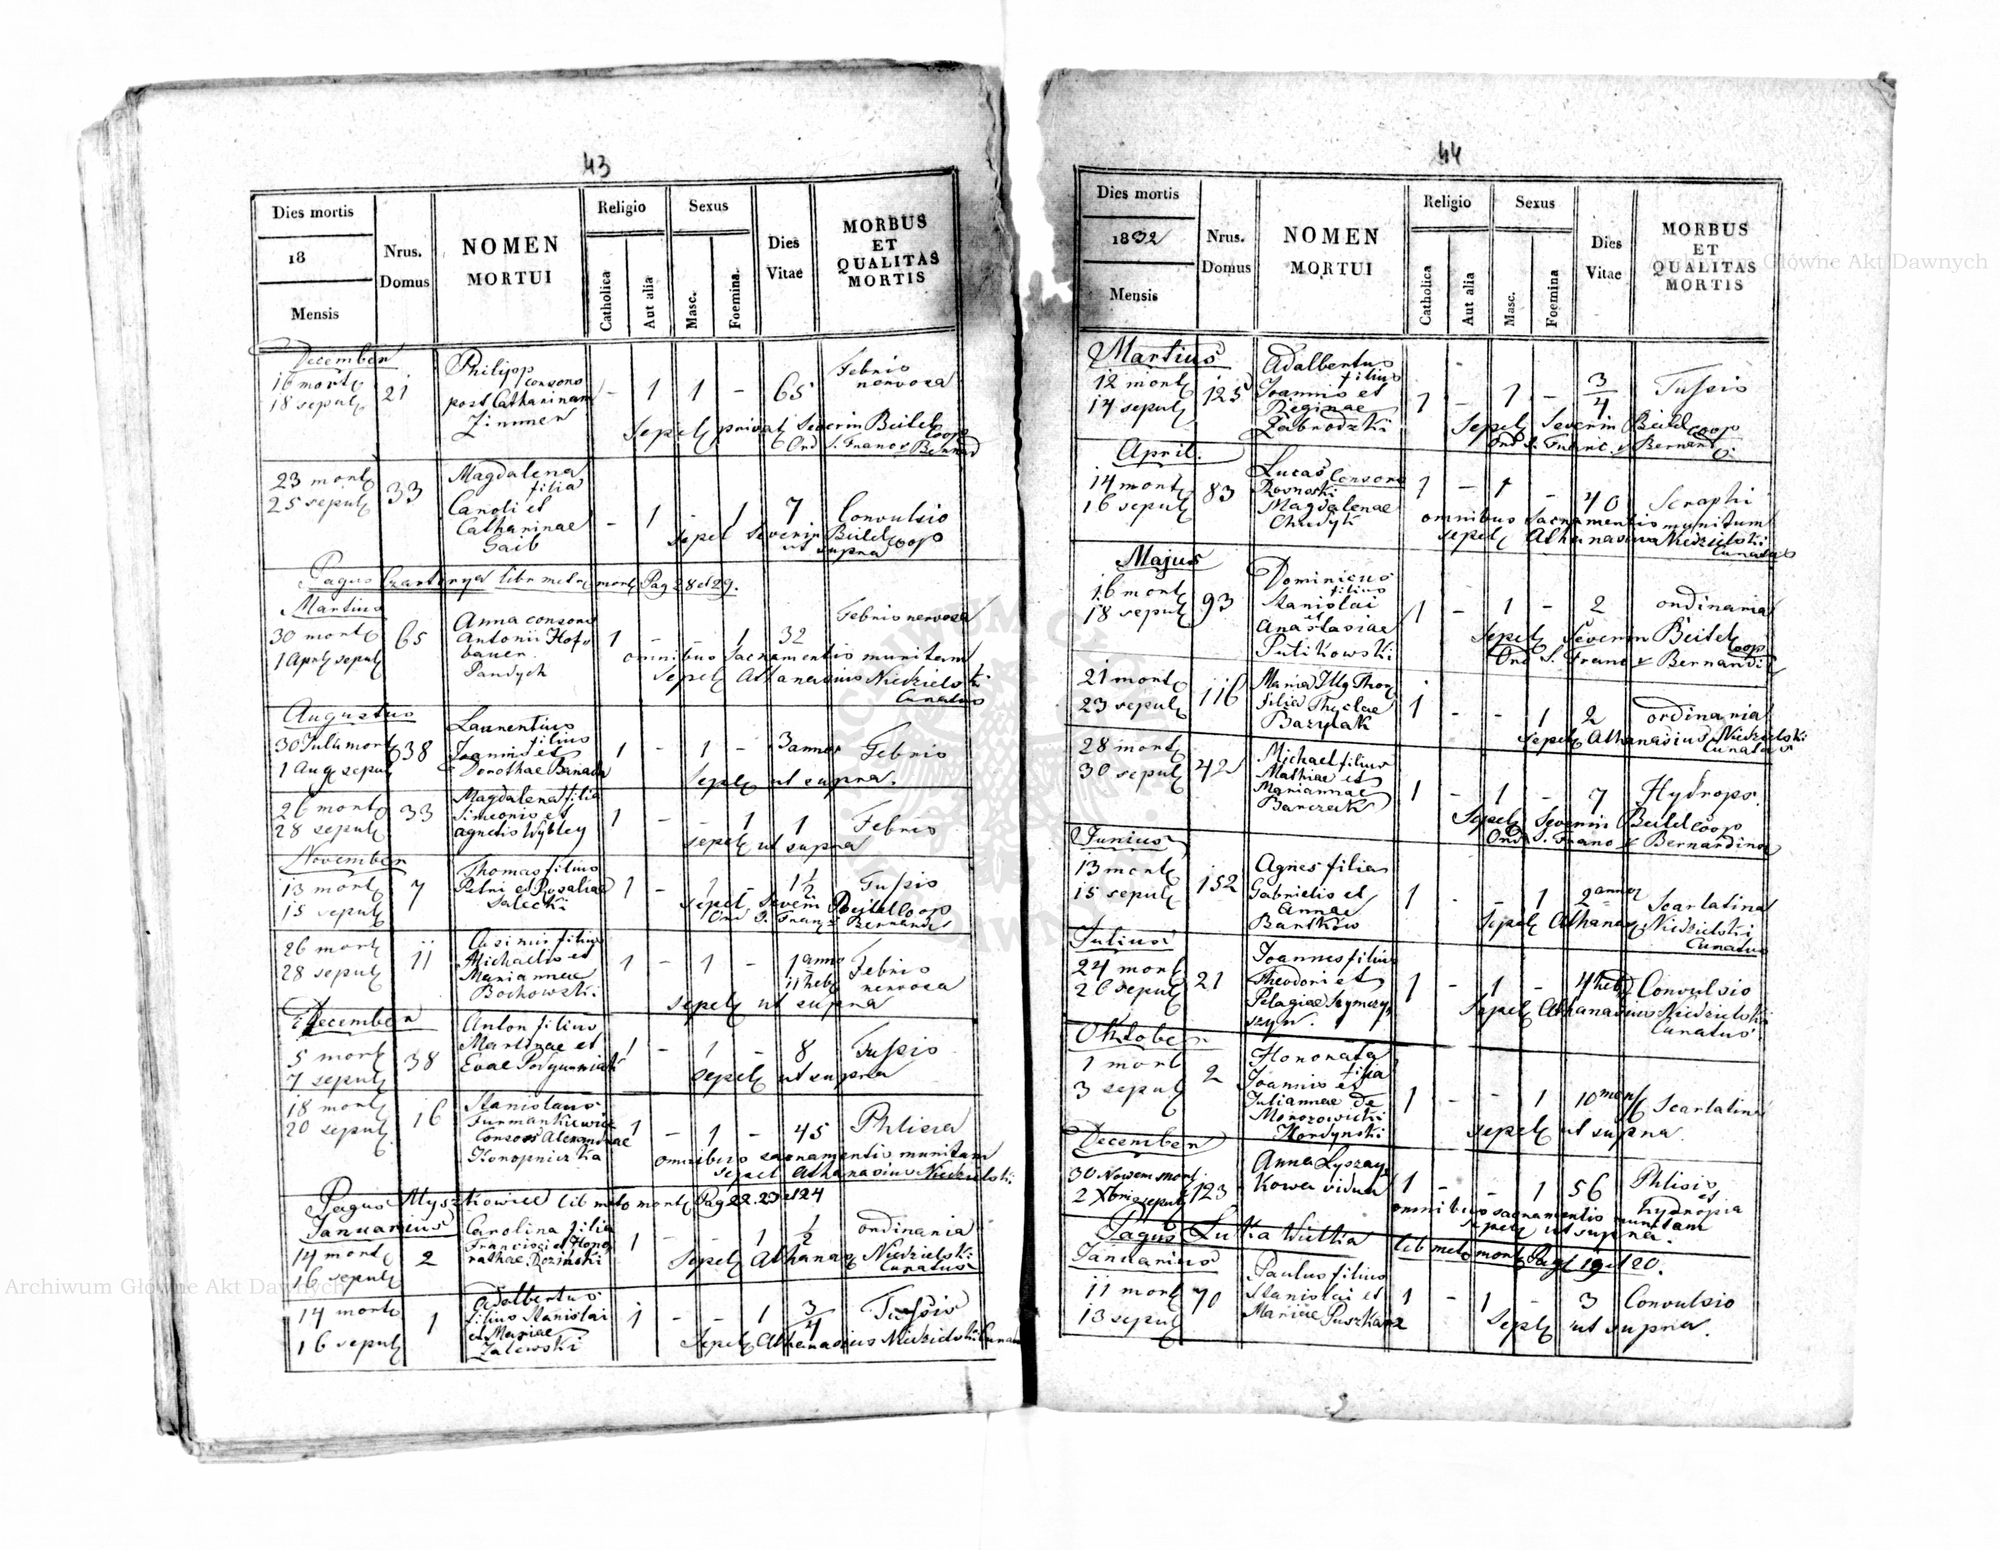 43
Dies mortis
18
Mensis
Nrus.
Domus
NOMEN
MORTUI
Religio
Catholica
Aut alia
Sexus
Masc.
Foemina.
Dies
Vitae
MORBUS
ET
QUALITAS
MORTIS
December
16 mort
18 sepult
21
Philipp
consors
post Catharinam
Zimmer
- 1 1 - 65
Febris
nervosa
Sepel privat Severin Beitel Coop
Ord S. Franc Bernard
23 mort
25 sepult
33
Magdalena
filia
Caroli et
Catharinae
Gaib
- 1 - 1 7 Convulsio
sepel Severin Beitel Coop
ut supra
Pagus Czartorya libr metr mort Pag 28 et 29.
Martius
30 mort
1 April sepult
65
Anna consors
Antonii Hof
bauer
Pandych
1 - - 1 32
Febris nervosa
omnibus Sacramentis munitam
Sepel Athanasius Niedzielski
Curatus
Augustus
30 Julii mort
1 Aug sepult
38
Laurentius
filius
Joannis et
Dorothae Banada
1 - 1 - 3 annor
Febris
Sepel ut supra.
26 mort
28 sepult
33
Magdalena filia
Simeonis et
Agnetis Wybley
1 - - 1 1 Febris
sepel ut supra
November
13 mort
15 sepult
7
Thomas filius
Petri et Rosaliae
Salecki
1 - 1 - 1 1/2 Tussis
sepel Severin Beitel Coop
Ord S. Franc Bernardi
26 mort
28 sepult
11
filius
Michaelis et
Mariannae
Bochowski.
1 - 1 - 1 anno
11 heb
Febris
nervosa
sepel ut supra
December
5 mort
7 sepult
38
Anton filius
Martinae et
Evae
1 - 1 - 8 Tussis
sepel ut supra
18 mort
20 sepult
16
Stanislaus
Furmankiewicz
Consors Alexandrae
Konopniczka
1 - 1 - 45 Phtisis
omnibus sacramentis munitam
sepel Athanasius Niedzielski
Pagus Myszkowice lib metr mort Pag 22. 23 et 24
Januarius
14 mort
16 sepult
2
Carolina filia
Francisci et Hono
rathae Dozinski
1 - - 1 1/2 ordinaria
Sepel Athanas Niedzielski
Curatus
14 mort
16 sepult
1
Adalbertus
filius Stanislai
et Mariae
Zalewski
1 - - 1 3/4 Tussis
Sepel Athanasius Niedzielski Curatus
44
Dies mortis
1832
Mensis
Nrus.
Domus
NOMEN
MORTUI
Religio
Catholica
Aut alia
Sexus
Masc.
Foemina
Dies
Vitae
MORBUS
ET
QUALITAS
MORTIS
Martius
12 mort
14 sepult
125
Adalbertus
filius
Joannis et
Reginae
Zabrodzki
1 - 1 - 3/4 Tussis
Sepel Severin Beitel Coop
Ord S. Franc. Bernard.
April.
14 mort
16 sepult
83
Lucas consors
Rovnoski
Magdalenae
Chudyk
1 - 1 - 40
omnibus Sacramentis munitum
sepel Athanasius Niedzielski
Curatus
Majus
16 mort
18 sepult
93
Dominicus
filius
Stanislai
et
Anastasiae
Putikowski
1 - 1 - 2 ordinaria
Sepel Severin Beitel Coop
Ord S. Franc Bernardi
21 mort
23 sepult
116
Maria Illg Thor
filia Theclae
Bazylak
1 - - 1 2 ordinaria
Sepel Athanasius Niedzielski
Curatus
28 mort
30 sepult
42
Michael filius
Mathiae et
Mariannae
Barczak
1 - 1 - 7 Hydrops.
Sepel Severin Beitel Coop
Ord S. Franc Bernardino
Junius
13 mort
15 sepult
152
Agnes filia
Gabrielis et
Annae
Bartkow
1 - - 1 2 annor Scarlatina
Sepel Athanas Niedzielski
Curatus
Julius
24 mort
26 sepult
21
Joannes filius
Theodori et
Pelagiae Szymczy
szyn.
1 - 1 - 4 hebd Convulsio
Sepel Athanasius Niedzielski
Curatus
Oktober
1 mort
3 sepult
2
Honorata
filia
Joannis et
Juliannae de
Morozowicki
Hordynski
1 - - 1 10 mens Scarlatina
sepel ut supra.
December
30 Novem mort
2 Xbris sepult
123
Anna Lyszczy
kowa vidua
1 - - 1 56 Phtisis
et
hydropia
omnibus sacramentis munitam
sepel ut supra.
Pagus Luka Wielka lib metr mort Pag 19 et 20.
Januarius
11 mort
13 sepult
70
Paulus filius
Stanislai et
Mariae Puszkarz
1 - 1 - 3 Convulsio
Sepel ut supra.
Archiwum Główne Akt Dawnych
Archiwum Główne Akt Dawnych